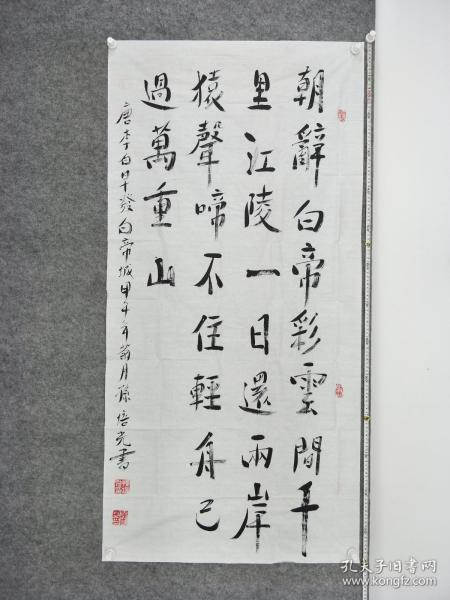 朝辭白帝彩雲間千
里江陵一日還兩岸
猿聲啼不住輕舟已
過萬重山
唐李白早發白帝城甲午年菊月孫培光書
孔夫子旧书网
www.kongfz.com